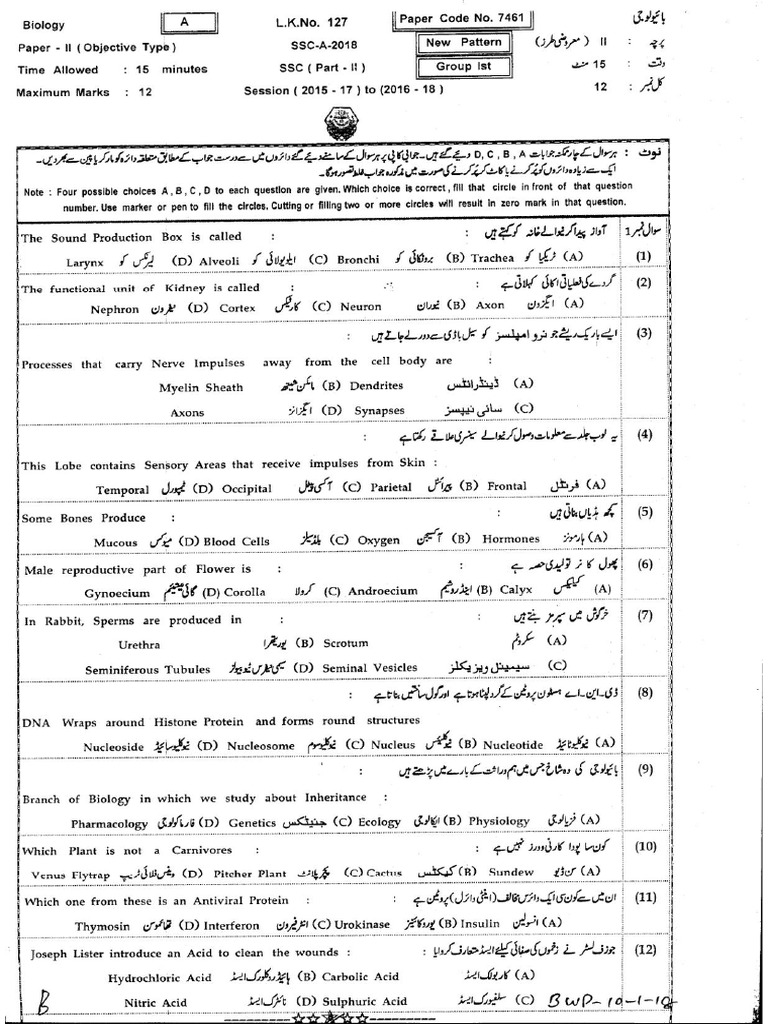 Biology A L.K.No. 127 Paper Code No. 7461 بائیولوجی
Paper - II ( Objective Type ) SSC-A-2018 New Pattern پرچہ : II (معروضی طرز)
Time Allowed : 15 minutes SSC ( Part - II ) Group Ist وقت : 15 منٹ
Maximum Marks : 12 Session ( 2015 - 17 ) to (2016 - 18 ) کل نمبر : 12
نوٹ : ہر سوال کے چار ممکنہ جوابات D, C , B , A دیئے گئے ہیں ۔ جوابی کاپی پر ہر سوال کے سامنے دیئے گئے دائروں میں سے درست جواب کے مطابق متعلقہ دائرہ کو مارکر یا پین سے بھر دیں۔
ایک سے زیادہ دائروں کو پُر کرنے یا کاٹ کر پُر کرنے کی صورت میں مذکورہ جواب غلط تصور ہوگا۔
Note : Four possible choices A , B , C , D to each question are given. Which choice is correct , fill that circle in front of that question
number. Use marker or pen to fill the circles. Cutting or filling two or more circles will result in zero mark in that question.
سوال نمبر 1 آواز پیدا کرنیوالے خانہ کو کہتے ہیں : The Sound Production Box is called :
(1) (A) ٹریکیا کو Trachea (B) برونکائی کو Bronchi (C) ایلویولائی کو Alveoli (D) لیرنکس کو Larynx
(2) گردے کی فعلیاتی اکائی کہلاتی ہے : The functional unit of Kidney is called :
(A) ایگزون Axon (B) نیوران Neuron (C) کارٹیکس Cortex (D) نیفرون Nephron
(3) ایسے باریک ریشے جو نرو امپلسز کو سیل باڈی سے دور لے جاتے ہیں :
Processes that carry Nerve Impulses away from the cell body are :
(A) ڈینڈرائٹس Dendrites (B) مائلن شیتھ Myelin Sheath
(C) سائی نیپسز Synapses (D) ایگزانز Axons
(4) یہ لوب جلد سے معلومات وصول کرنیوالے سینسری علاقے رکھتا ہے :
This Lobe contains Sensory Areas that receive impulses from Skin :
(A) فرنٹل Frontal (B) پیرائٹل Parietal (C) آکسی پیٹل Occipital (D) ٹیمپورل Temporal
(5) کچھ ہڈیاں بناتی ہیں : Some Bones Produce :
(A) ہارمونز Hormones (B) آکسیجن Oxygen (C) بلڈسیلز Blood Cells (D) میوکس Mucous
(6) پھول کا نر تولیدی حصہ ہے : Male reproductive part of Flower is :
(A) کیلیکس Calyx (B) اینڈروشیم Androecium (C) کرولا Corolla (D) گائنی شیئم Gynoecium
(7) خرگوش میں سپرمز بنتے ہیں : In Rabbit, Sperms are produced in :
(A) سکروٹم Scrotum (B) یوریتھرا Urethra
(C) سیمینل ویزیکلز Seminal Vesicles (D) سیمی نیفرس ٹیوبیولز Seminiferous Tubules
(8) ڈی۔این۔اے ہسٹون پروٹین کے گرد لپٹا ہوتا ہے اور گول ساختیں بناتا ہے :
DNA Wraps around Histone Protein and forms round structures
(A) نیوکلیوٹائیڈ Nucleotide (B) نیوکلیئس Nucleus (C) نیوکلیوسوم Nucleosome (D) نیوکلیوسائیڈ Nucleoside
(9) بائیولوجی کی وہ شاخ جس میں ہم وراثت کے بارے میں پڑھتے ہیں :
Branch of Biology in which we study about Inheritance :
(A) فزیالوجی Physiology (B) ایکالوجی Ecology (C) جنیٹکس Genetics (D) فارماکولوجی Pharmacology
(10) کون سا پودا کارنی وورز نہیں ہے : Which Plant is not a Carnivores :
(A) سن ڈیو Sundew (B) کیکٹس Cactus (C) پچر پلانٹ Pitcher Plant (D) وینس فلائی ٹریپ Venus Flytrap
(11) ان میں سے کون سی ایک وائرس مخالف (اینٹی وائرل) پروٹین ہے : Which one from these is an Antiviral Protein :
(A) انسولین Insulin (B) یوروکائینیز Urokinase (C) انٹرفیرون Interferon (D) تھائموسن Thymosin
(12) جوزف لسٹر نے زخموں کی صفائی کیلئے ایسڈ متعارف کروایا : Joseph Lister introduce an Acid to clean the wounds :
(A) کاربولک ایسڈ Carbolic Acid (B) ہائیڈروکلورک ایسڈ Hydrochloric Acid
(C) سلفیورک ایسڈ Sulphuric Acid (D) نائٹرک ایسڈ Nitric Acid
B